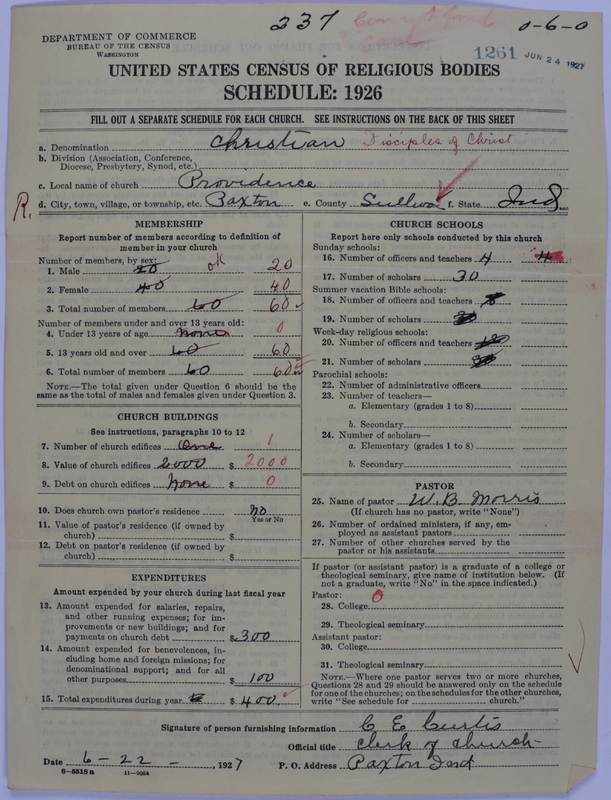 337
0-6-0
DEPARTMENT OF COMMERCE
BUREAU OF THE CENSUS
WASHINGTON
1261 JUN 24 1927
UNITED STATES CENSUS OF RELIGIOUS BODIES
SCHEDULE: 1926
FILL OUT A SEPARATE SCHEDULE FOR EACH CHURCH. SEE INSTRUCTIONS ON THE BACK OF THIS SHEET
a. Denomination Christian Disciples of Christ
b. Division (Association, Conference,
Diocese, Presbytery, Synod, etc.)
c. Local name of church Providence
R. d. City, town, village, or township, etc. Paxton e. County Sullivan f. State Ind
MEMBERSHIP
Report number of members according to definition of
member in your church
Number of members, by sex:
1. Male 20 ok 20
2. Female 40 40
3. Total number of members 60 60
Number of members under and over 13 years old:
4. Under 13 years of age none 0
5. 13 years old and over 60 60
6. Total number of members 60 60
NOTE.—The total given under Question 6 should be the
same as the total of males and females given under Question 3.
CHURCH BUILDINGS
See instructions, paragraphs 10 to 12
7. Number of church edifices One 1
8. Value of church edifices 2000 $ 2000
9. Debt on church edifices None $ 0
10. Does church own pastor's residence No
Yes or No
11. Value of pastor's residence (if owned by
church) $
12. Debt on pastor's residence (if owned by
church) $
EXPENDITURES
Amount expended by your church during last fiscal year
13. Amount expended for salaries, repairs,
and other running expenses; for im-
provements or new buildings; and for
payments on church debt $ 300
14. Amount expended for benevolences, in-
cluding home and foreign missions; for
denominational support; and for all
other purposes $ 100
15. Total expenditures during year $ 400
CHURCH SCHOOLS
Report here only schools conducted by this church
Sunday schools:
16. Number of officers and teachers 4 4
17. Number of scholars 30
Summer vacation Bible schools:
18. Number of officers and teachers
19. Number of scholars
Week-day religious schools:
20. Number of officers and teachers
21. Number of scholars
Parochial schools:
22. Number of administrative officers
23. Number of teachers—
a. Elementary (grades 1 to 8)
b. Secondary
24. Number of scholars—
a. Elementary (grades 1 to 8)
b. Secondary
PASTOR
25. Name of pastor W. B. Morris
(If church has no pastor, write "None")
26. Number of ordained ministers, if any, em-
ployed as assistant pastors
27. Number of other churches served by the
pastor or his assistants
If pastor (or assistant pastor) is a graduate of a college or
theological seminary, give name of institution below. (If
not a graduate, write "No" in the space indicated.)
Pastor: 0
28. College
29. Theological seminary
Assistant pastor:
30. College
31. Theological seminary
NOTE.—Where one pastor serves two or more churches,
Questions 28 and 29 should be answered only on the schedule
for one of the churches; on the schedules for the other churches,
write "See schedule for church."
Signature of person furnishing information C E Curtis
Official title Clerk of Church
Date 6-22-, 1927 P. O. Address Paxton Ind
8-5518 a 11-9054